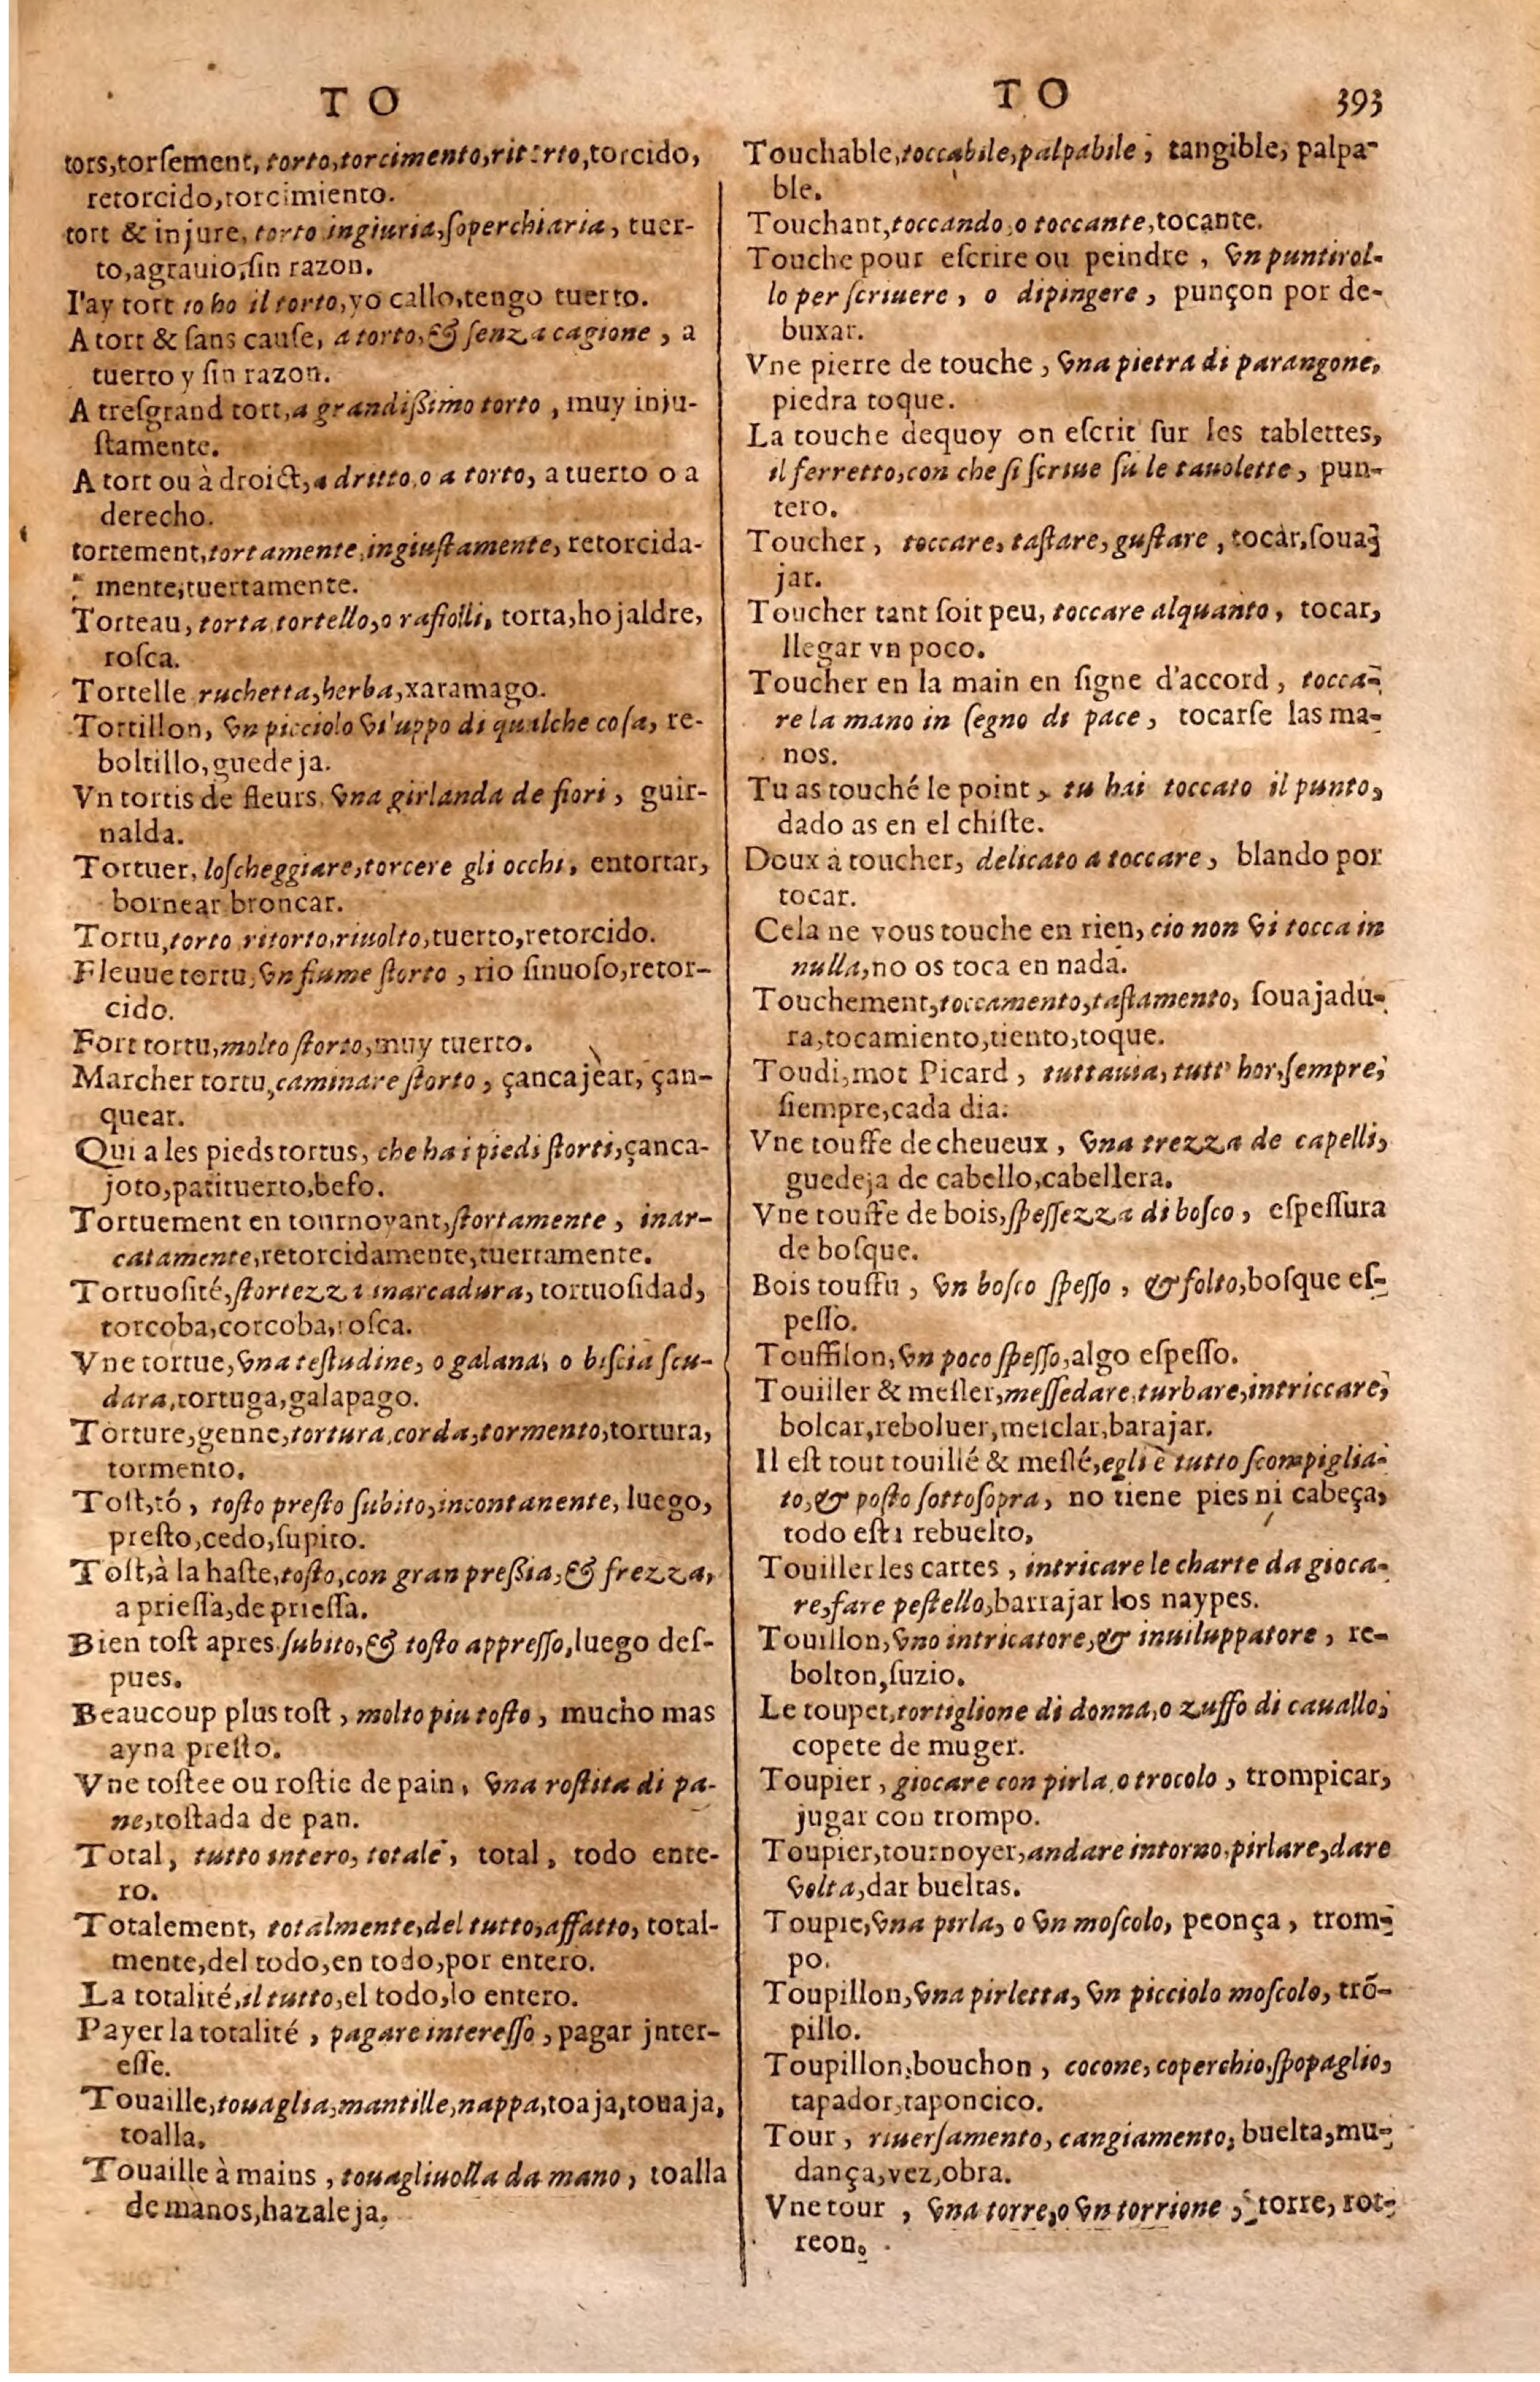 TO
tors,torſement, torto,torcimento,ritorto,torcido,
retorcido,torcimiento.
tort & injure, torto ingiuria,ſoperchiaria, tuer-
to,agrauio,ſin razon.
I'ay tort io ho il torto,yo callo,tengo tuerto.
A tort & ſans cauſe, a torto,& ſenza cagione, a
tuerto y ſin razon.
A treſgrand tort,a grandißimo torto, muy inju-
ſtamente.
A tort ou à droict,a dritto,o a torto, a tuerto o a
derecho.
tortement,tortamente,ingiuſtamente, retorcida-
mente,tuertamente.
Torteau, torta tortello,o rafiolli, torta,hojaldre,
roſca.
Tortelle ruchetta,herba,xaramago.
Tortillon, vn picciolo viluppo di qualche coſa, re-
boltillo,guedeja.
Vn tortis de fleurs, vna girlanda de fiori, guir-
nalda.
Tortuer, loſcheggiare,torcere gli occhi, entortar,
bornear broncar.
Tortu,torto ritorto,riuolto,tuerto,retorcido.
Fleuue tortu,vn fiume ſtorto, rio ſinuoſo,retor-
cido.
Fort tortu,molto ſtorto,muy tuerto.
Marcher tortu,caminare ſtorto, çancajear, çan-
quear.
Qui a les pieds tortus, che ha i piedi ſtorti,çanca-
joto,patituerto,beſo.
Tortuement en tournoyant,ſtortamente, inar-
catamente,retorcidamente,tuertamente.
Tortuoſité,ſtortezza inarcadura, tortuoſidad,
torcoba,corcoba,roſca.
Vne tortue,vna teſtudine, o galana, o biſcia ſcu-
dara,tortuga,galapago.
Torture,genne,tortura,corda,tormento,tortura,
tormento.
Toſt,tô, toſto preſto ſubito,incontanente, luego,
preſto,cedo,ſupito.
Toſt,à la haſte,toſto,con gran preßia,& frezza,
a prieſſa,de prieſſa.
Bien toſt apres ſubito,& toſto appreſſo,luego deſ-
pues.
Beaucoup plus toſt, molto piu toſto, mucho mas
ayna preſto.
Vne toſtee ou roſtie de pain, vna roſtita di pa-
ne,toſtada de pan.
Total, tutto intero, totale, total, todo ente-
ro.
Totalement, totalmente,del tutto,affatto, total-
mente,del todo,en todo,por entero.
La totalité,il tutto,el todo,lo entero.
Payer la totalité, pagare intereſſo, pagar jnter-
eſſe.
Touaille,touaglia,mantille,nappa,toaja,touaja,
toalla.
Touaille à mains, touagliuolla da mano, toalla
de manos,hazaleja.
TO 393
Touchable,toccabile,palpabile, tangible, palpa-
ble.
Touchant,toccando,o toccante,tocante.
Touche pour eſcrire ou peindre, vn puntirol-
lo per ſcriuere, o dipingere, punçon por de-
buxar.
Vne pierre de touche, vna pietra di parangone,
piedra toque.
La touche dequoy on eſcrit ſur les tablettes,
il ferretto,con che ſi ſcriue ſu le tauolette, pun-
tero.
Toucher, toccare, taſtare, guſtare, tocar,ſoua-
jar.
Toucher tant ſoit peu, toccare alquanto, tocar,
llegar vn poco.
Toucher en la main en ſigne d'accord, tocca-
re la mano in ſegno di pace, tocarſe las ma-
nos.
Tu as touché le point, tu hai toccato il punto,
dado as en el chiſte.
Doux à toucher, delicato a toccare, blando por
tocar.
Cela ne vous touche en rien, cio non vi tocca in
nulla,no os toca en nada.
Touchement,toccamento,taſtamento, ſouajadu-
ra,tocamiento,tiento,toque.
Toudi,mot Picard, tuttauia, tutt' hor,ſempre,
ſiempre,cada dia.
Vne touffe de cheueux, vna trezza de capelli,
guedeja de cabello,cabellera.
Vne touffe de bois,ſpeſſezza di boſco, eſpeſſura
de boſque.
Bois touffu, vn boſco ſpeſſo, & folto,boſque eſ-
peſſo.
Touffilon,vn poco ſpeſſo,algo eſpeſſo.
Touiller & meſler,meſſedare,turbare,intriccare,
bolcar,reboluer,metclar,barajar.
Il eſt tout touillé & meſlé,egli è tutto ſcompiglia-
to,& poſto ſottoſopra, no tiene pies ni cabeça,
todo eſta rebuelto,
Touiller les cartes, intricare le charte da gioca-
re,fare peſtello,barrajar los naypes.
Touillon,vno intricatore,& inuiluppatore, re-
bolton,ſuzio.
Le toupet,tortiglione di donna,o zuffo di cauallo,
copete de muger.
Toupier, giocare con pirla,o trocolo, trompicar,
jugar con trompo.
Toupier,tournoyer,andare intorno,pirlare,dare
volta,dar bueltas.
Toupie,vna pirla, o vn moſcolo, peonça, trom-
po.
Toupillon,vna pirletta, vn picciolo moſcolo, trõ-
pillo.
Toupillon,bouchon, cocone, coperchio,ſpopaglio,
tapador,taponcico.
Tour, riuerſamento, cangiamento, buelta,mu-
dança,vez,obra.
Vne tour, vna torre,o vn torrione, torre, tor-
reon.